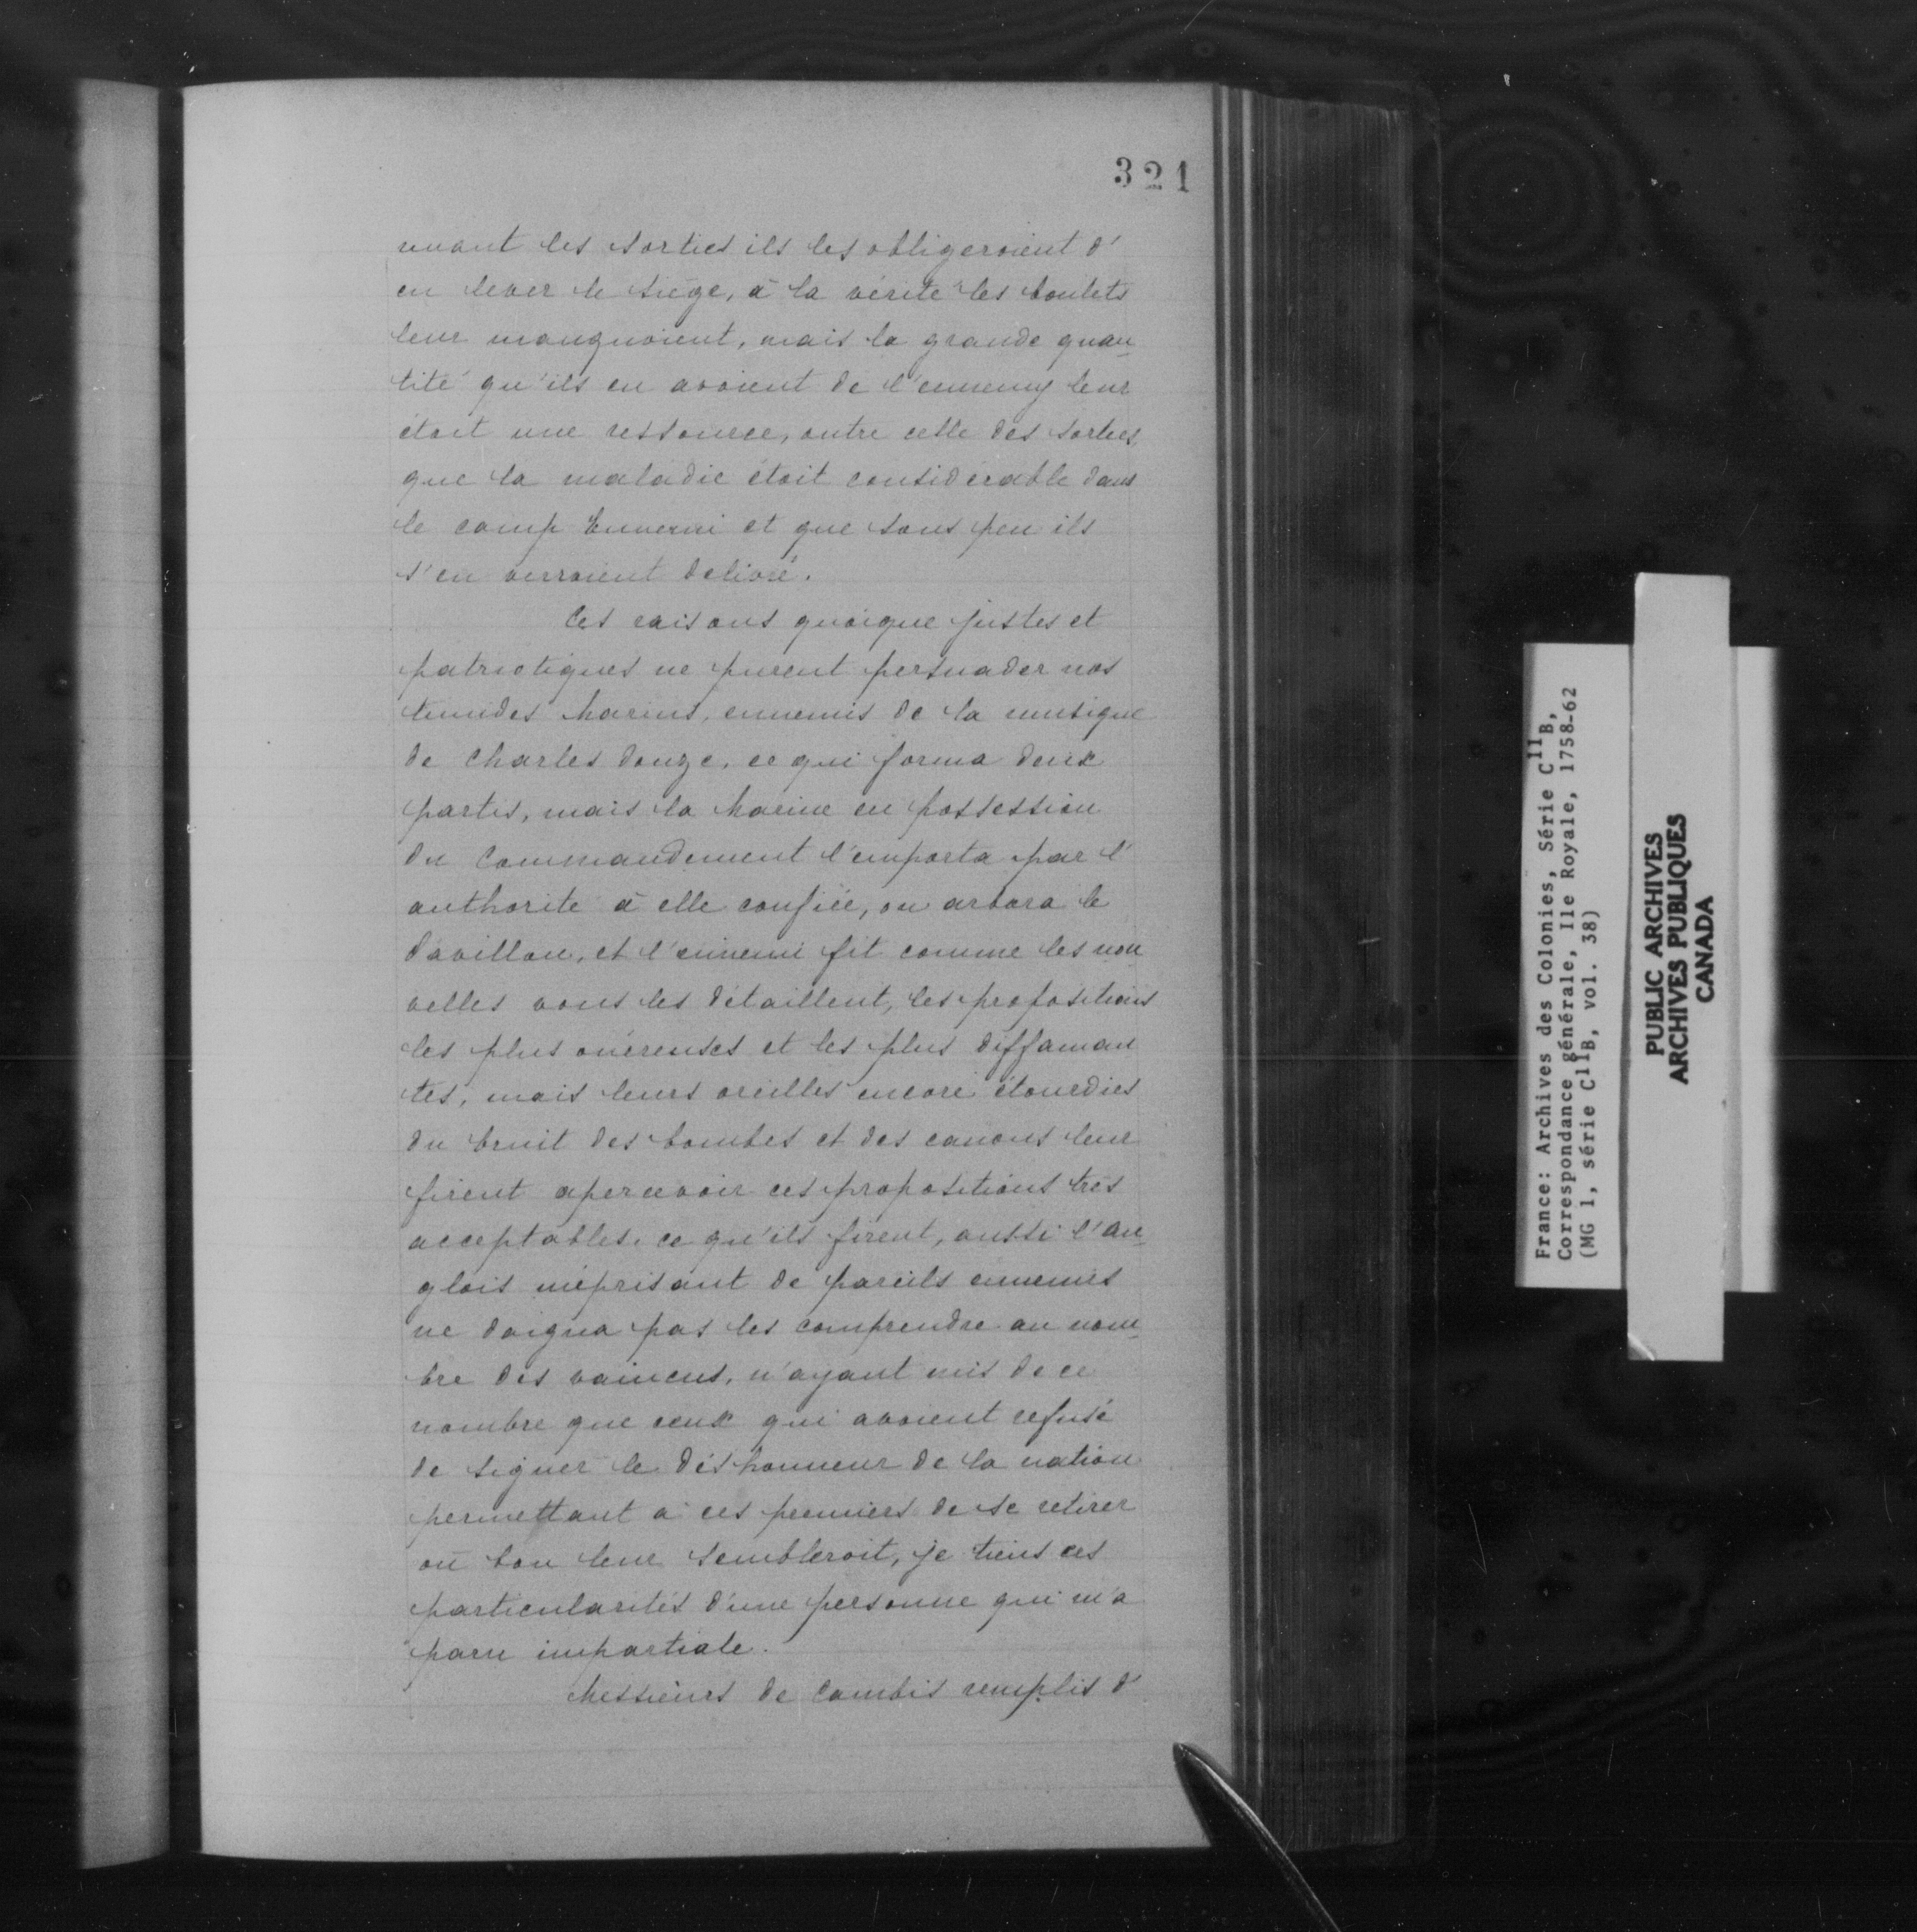 321
nuant les sorties ils les obligeroient d'
en lever le siège, à la vérité les boulets
leur manquoient, mais la grande quan
tité qu'ils en avoient de l'ennemy leur
étoit une ressource, outre celle des sorties,
que la maladie étoit considérable dans
le camp Ennemi et que sous peu ils
s'en verroient delivré.
Ces raisons quoique justes et
patriotiques ne purent persuader nos
timides Marins, ennemis de la musique
de Charles douze, ce qui forma deux
partis, mais la Marine en possession
du Commandement l'emporta par l'
authorite à elle confiée, on arbora le
Pavillon, et l'ennemi fit comme les nou
velles vous les détaillent, les propositions
les plus onéreuses et les plus diffaman
tes, mais leurs oreilles encore étourdies
du bruit des bombes et des canons leur
firent apercevoir ces propositions très
acceptables, ce qu'ils firent, aussi l'an
glois méprisant de pareils ennemis
ne daigna pas les comprendre au nom
bre des vaincus, n'ayant mis de ce
nombre que ceux qui avoient refusé
de signer le déshonneur de la nation
permettant à ces premiers de se retirer
où bon leur sembleroit, je tiens ces
particularités d'une personne qui m'a
paru impartiale.
Messieurs de Cambis remplis d'
France: Archives des Colonies, Série C11B,
Correspondance générale, Ile Royale, 1758-62
(MG 1, série C11B, vol. 38)
PUBLIC ARCHIVES
ARCHIVES PUBLIQUES
CANADA